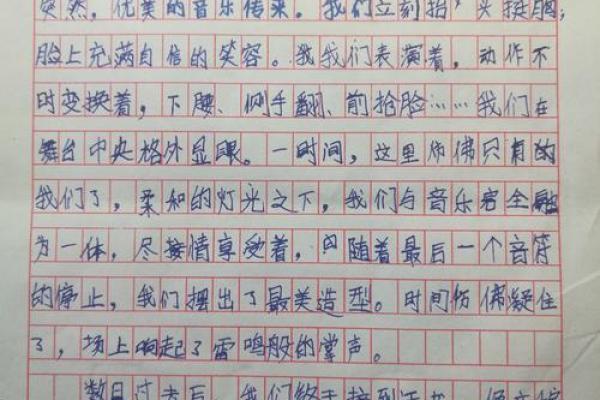 突然，优美的音乐传来。我们立刻抬头挺胸；
脸上充满自信的笑容。我们表演着，动作不
时变换着，下腰、侧手翻、前抢脸……我们在
舞台中央格外显眼。一时间，这里仿佛只有的
我们了，柔和的灯光之下，我们与音乐完全融
为一体，尽接情享受着，随着最后一个音符
的停止，我们摆出了最美造型。时间仿佛凝住
了，场上响起了雷鸣般的掌声。
数日过去后，我们终于接到